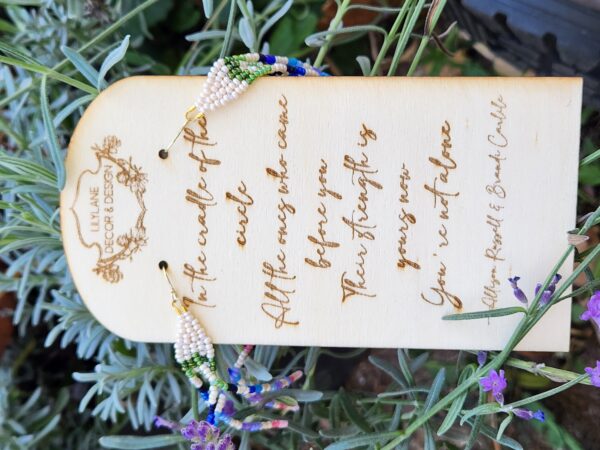 LILYLANE
DECOR & DESIGN
In the cradle of the
circle
All the ones who came
before you
Their strength is
yours now
You're not alone
-Allison Russell & Brandi Carlile